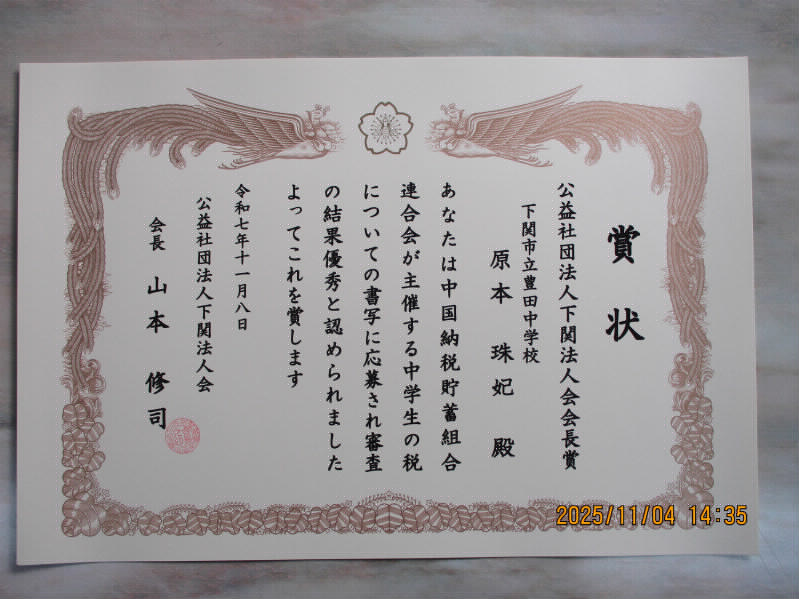 賞状
公益社団法人下関法人会会長賞
下関市立豊田中学校
原本 珠妃 殿
あなたは中国納税貯蓄組合
連合会が主催する中学生の税
についての書写に応募され審査
の結果優秀と認められました
よってこれを賞します
令和七年十一月八日
公益社団法人下関法人会
会長 山本 修司
2025/11/04 14:35